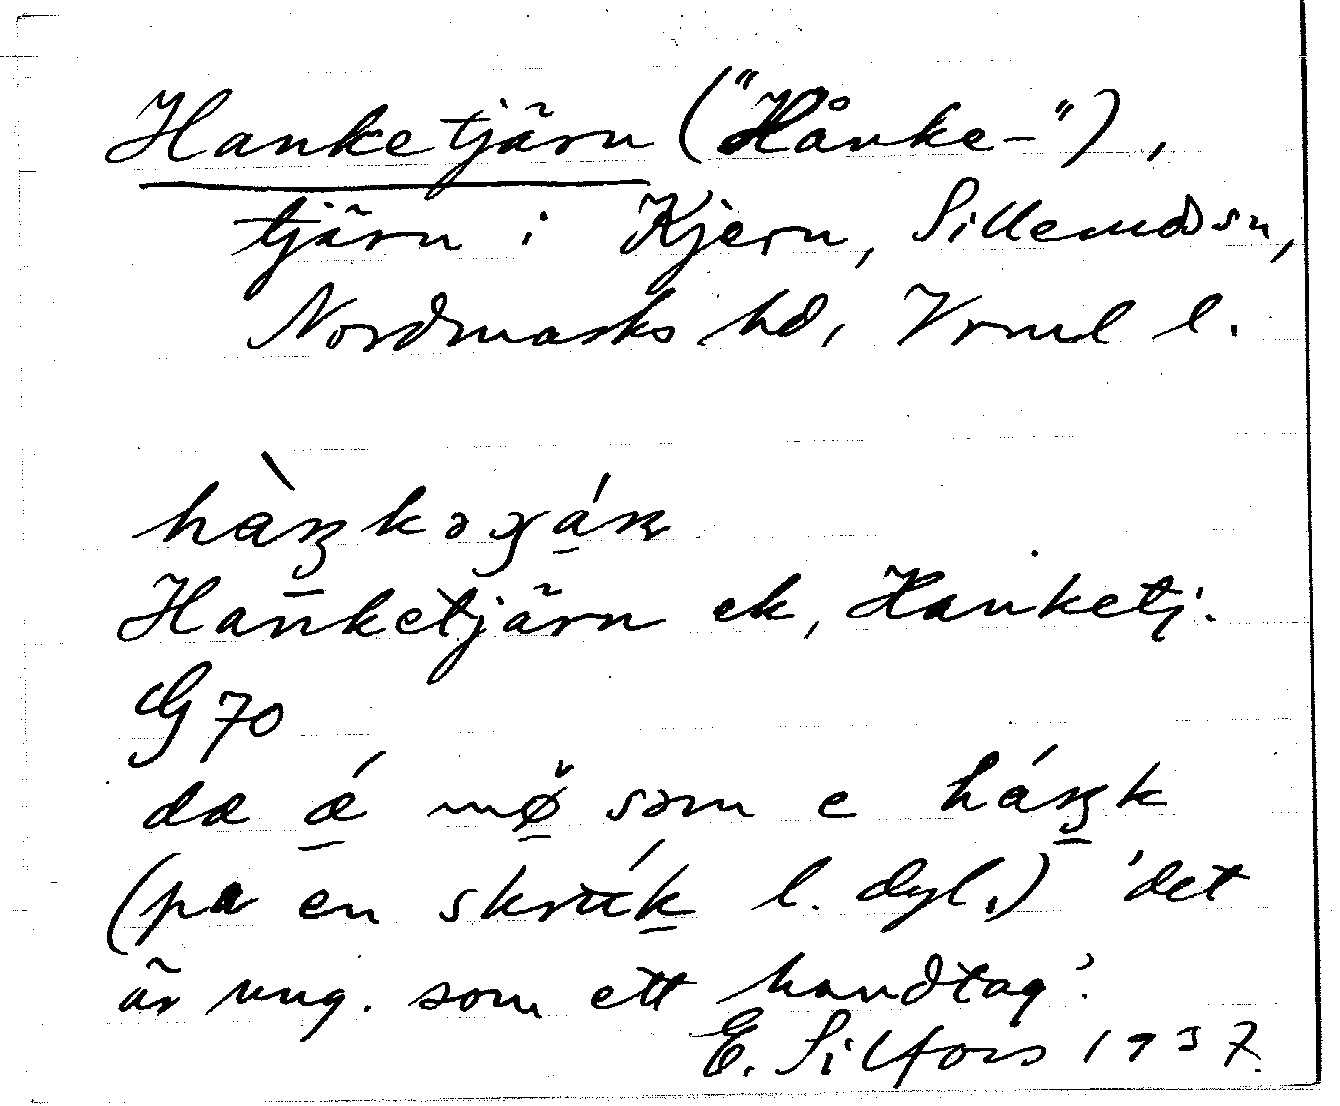 Hanketjärn ("Hånke-"),
tjärn i Kjern, Sillerudssn,
Nordmarks hd, Vrml l.
hàŋkəɣá̱ɳ
Hanketjärn ek, Hanketj.
G 70
dæ ǽ mø̆ som e háŋk
(pa en skruk l. dyl.) 'det
är ung. som ett handtag'.
E. Silfors 1937.